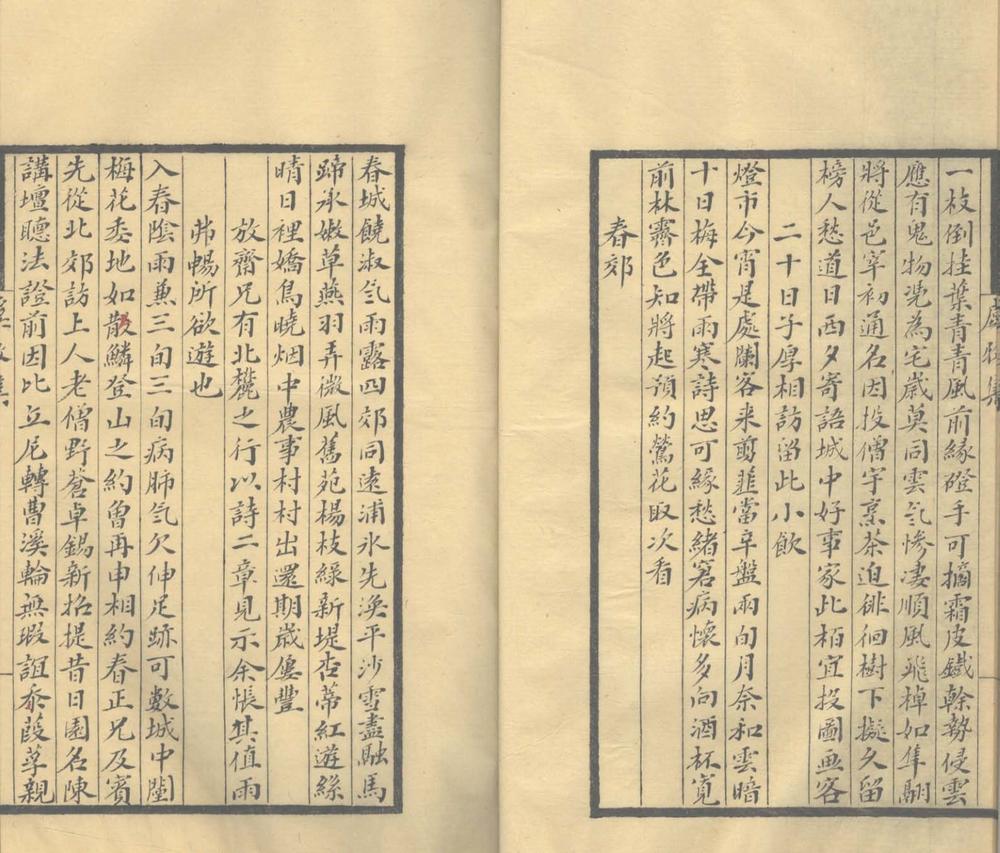 一枝倒挂葉青青風前緣磴手可摘霜皮鐵榦勢侵雲
應有鬼物凴為宅歲莫同雲氣慘淒順風飛棹如隼翮
將從邑宰初通名因投僧宇烹茶迫徘徊樹下擬久留
榜人愁道日西夕寄語城中好事家此栢宜投圖画客
二十日子厚相訪㽞此小飲
燈市今宵是處闌客来剪韮當辛盤兩旬月奈和雲暗
十日梅全帶雨寒詩思可緣愁緒窘病懷多向酒杯寛
前林霽色知將起預約鶯花取次看
春郊
春城饒淑氣雨露四郊同遠浦氷先渙平沙雪盡融馬
蹄承嫩草燕羽弄微風舊苑楊枝綠新堤杏蒂紅遊絲
晴日裡嬌鳥曉烟中農事村村出還期歲屢豐
放齋兄有北麓之行以詩二章見示余悵其值雨
弗暢所欲遊也
入春陰雨兼三旬三旬病肺氣欠伸足跡可數城中闉
梅花委地如散鱗登山之約曾再申相約春正兄及賓
先從北郊訪上人老僧野蒼卓錫新招提昔日園名陳
講壇聽法證前因比丘尼轉曹溪輪無瑕誼忝葭莩親